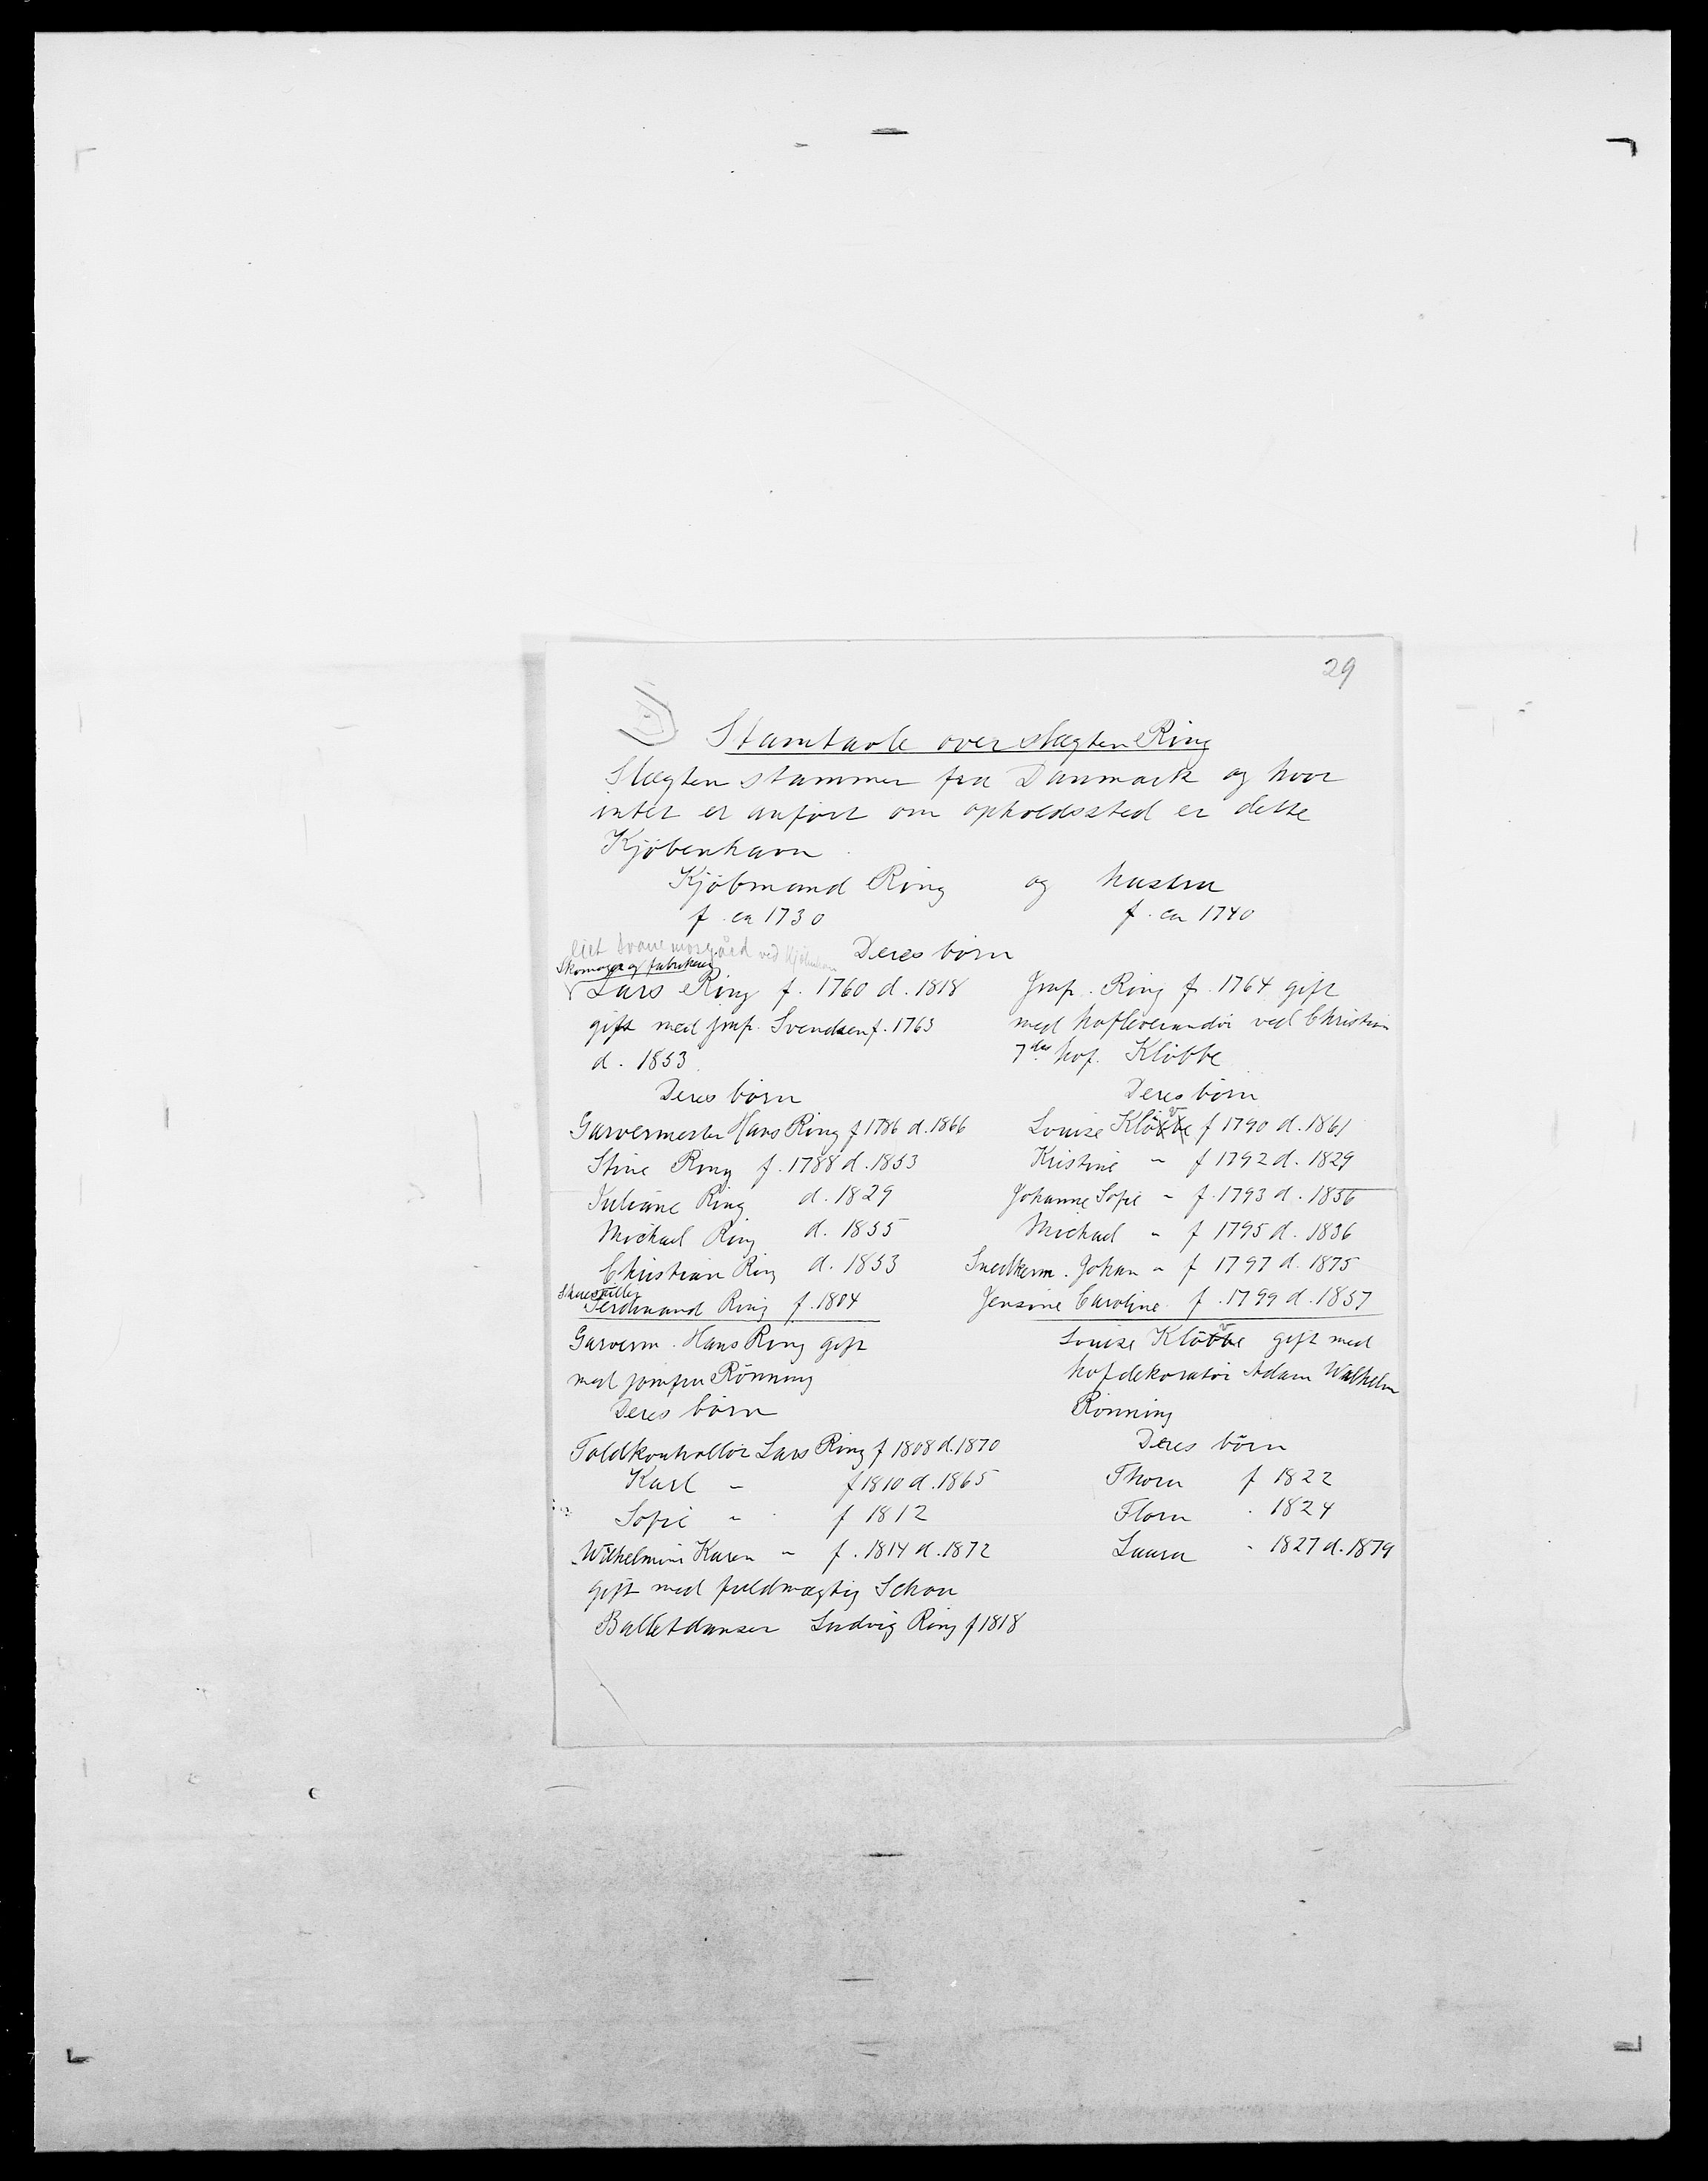 29
Stamtavle over slægten Ring
Slægten stammer fra Danmark og hvor
intet er anført om opholdssted er dette
Kjöbenhavn
Kjöbmand Ring og hustru
f. ca 1730 f. ca 1740
Eiet Svanemosegård ved Kjöbenhavn Deres börn
Skomager og fabrikeur
Lars Ring f. 1760 d. 1818
gift med jmf. Svendsen f. 1763
d. 1853
Deres börn
Garvermester Hans Ring f 1786 d. 1866
Stine Ring f. 1788 d. 1853
Juliane Ring d. 1829
Michael Ring d. 1855
Christian Ring d. 1853
Skuespiller
Ferdinand Ring f. 1804
Garverm. Hans Ring gift
med jomfru Rönning
Deres börn
Toldkontrollör Lars Ring f 1808 d. 1870
Karl " f 1810 d. 1865
Sofie " f 1812
Wilhelmine Karen " f. 1814 d. 1872
gift med fuldmægtig Schou
Balletdanser Ludvig Ring f 1818
Jmf. Ring f. 1764 gift
med hofleverandör ved Christian
7des hof. Klöbbe
Deres börn
Louise Klövbe f 1790 d. 1861
Kristine " f 1792 d. 1829
Johanne Sofie " f. 1793 d. 1856
Michael " f 1795 d. 1836
Snedkerm. Johan " f 1797 d. 1875
Jensine Caroline f. 1799 d. 1857
Louise Klövbe gift med
hofdekoratör Adam Wilhelm
Rönning
Deres börn
Thora f 1822
Flora " 1824
Laura " 1827 d. 1879